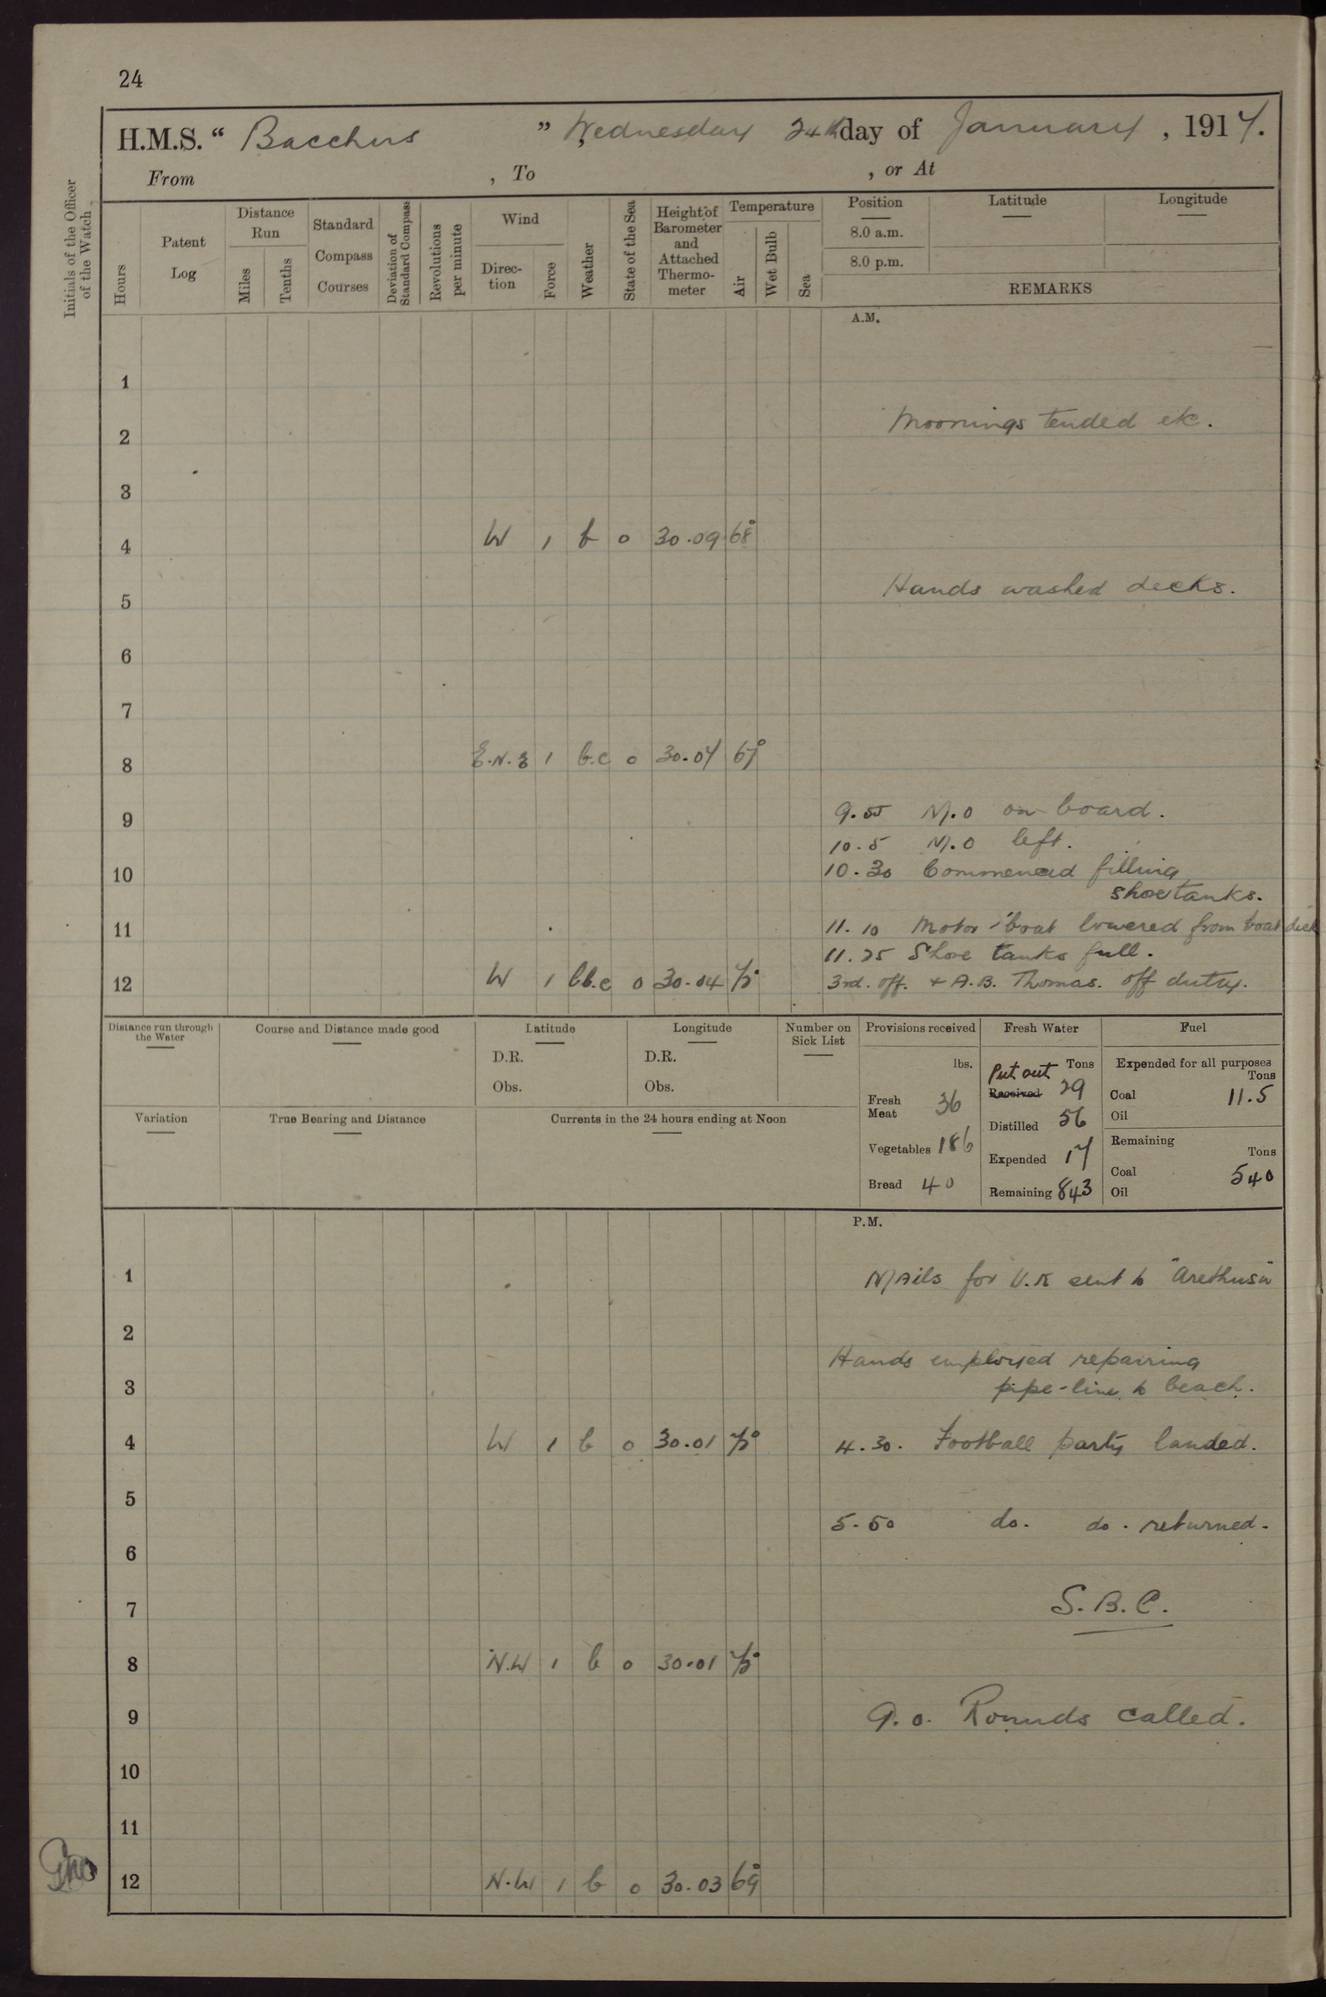 24
H.M.S. “ Bacchus ” Wednesday 24th day of January , 1917.
From , To , or At
Initials of the Officer of the Watch
Hours
Patent Log
Distance Run
Miles
Tenths
Standard Compass Courses
Deviation of Standard Compass
Revolutions per minute
Wind
Direc-tion
Force
Weather
State of the Sea
Height of Barometer and Attached Thermo-meter
Temperature
Air
Wet Bulb
Sea
Position
8.0 a.m.
8.0 p.m.
Latitude
Longitude
REMARKS
A.M.
1
Moorings tended etc.
2
3
4 W 1 b 0 30.09 68°
Hands washed decks.
5
6
7
8 E.N.E 1 b.c 0 30.07 67°
9.55 M.O on board.
9
10.5 M.O left.
10 10.30 Commenced filling
shore tanks.
11 11.10 Motor-boat lowered from boat deck
11.25 Shore tanks full.
12 W 1 b.c 0 30.04 70° 3rd. off. + A.B. Thomas. off duty.
Distance run through the Water
Course and Distance made good
Latitude
D.R.
Obs.
Longitude
D.R.
Obs.
Number on Sick List
Provisions received
lbs.
Fresh Meat 36
Vegetables 186
Bread 40
Fresh Water
Put out Tons
Received 29
Distilled 56
Expended 17
Remaining 843
Fuel
Expended for all purposes
Tons
Coal 11.5
Oil
Remaining
Tons
Coal 540
Oil
Variation
True Bearing and Distance
Currents in the 24 hours ending at Noon
P.M.
1 Mails for U.K sent to "Arethusa"
2
Hands employed repairing
3 pipe-line to beach.
4 W 1 b 0 30.01 70° 4.30. Football party landed.
5
5.50 do. do. returned.
6
7 S.B.C.
8 N.W 1 b 0 30.01 70°
9 9.0. Rounds called.
10
11
12 N.W 1 b 0 30.03 69°